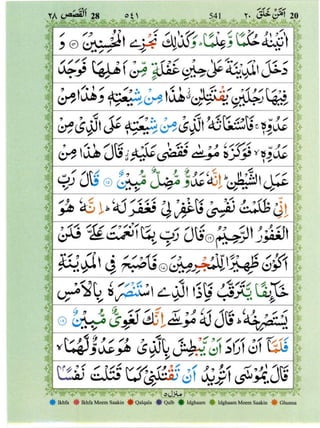 ٢٨ اَلْقَصَص 28 ٥٤١ 541 اَمَّنْ خَلَقَ ٢٠ 20
اٰتَيْنٰهُ حُكْمًا وَّعِلْمًا ؕ وَكَذٰلِكَ نَجْزِى الْمُحْسِنِيْنَ وَ
دَخَلَ الْمَدِيْنَةَ عَلٰى حِيْنِ غَفْلَةٍ مِّنْ اَهْلِهَا فَوَجَدَ
فِيْهَا رَجُلَيْنِ يَقْتَتِلٰنِ هٰذَا مِنْ شِيْعَتِهٖ وَهٰذَا مِنْ
عَدُوِّهٖ ۚ فَاسْتَغَاثَهُ الَّذِىْ مِنْ شِيْعَتِهٖ عَلَى الَّذِىْ مِنْ
عَدُوِّهٖ ۙ فَوَكَزَهٗ مُوْسٰى فَقَضٰى عَلَيْهِ ۖ قَالَ هٰذَا مِنْ
عَمَلِ الشَّيْطٰنِ ؕ اِنَّهٗ عَدُوٌّ مُّضِلٌّ مُّبِيْنٌ ۝١٥ قَالَ رَبِّ
اِنِّىْ ظَلَمْتُ نَفْسِىْ فَاغْفِرْ لِىْ فَغَفَرَ لَهٗ ؕ اِنَّهٗ هُوَ
الْغَفُوْرُ الرَّحِيْمُ قَالَ رَبِّ بِمَاۤ اَنْعَمْتَ عَلَىَّ فَلَنْ
اَكُوْنَ ظَهِيْرًا لِّلْمُجْرِمِيْنَ فَاَصْبَحَ فِى الْمَدِيْنَةِ
خَآئِفًا يَّتَرَقَّبُ فَاِذَا الَّذِى اسْتَنْصَرَهٗ بِالْاَمْسِ
يَسْتَصْرِخُهٗ ؕ قَالَ لَهٗ مُوْسٰۤى اِنَّكَ لَغَوِىٌّ مُّبِيْنٌ ۝١٨
فَلَمَّاۤ اَنْ اَرَادَ اَنْ يَّبْطِشَ بِالَّذِىْ هُوَ عَدُوٌّ لَّهُمَا ۙ
قَالَ يٰمُوْسٰٓى اَتُرِيْدُ اَنْ تَقْتُلَنِىْ كَمَا قَتَلْتَ نَفْسًۢا
منزل ٥
Ikhfa Ikhfa Meem Saakin Qalqala Qalb Idghaam Idghaam Meem Saakin Ghunna